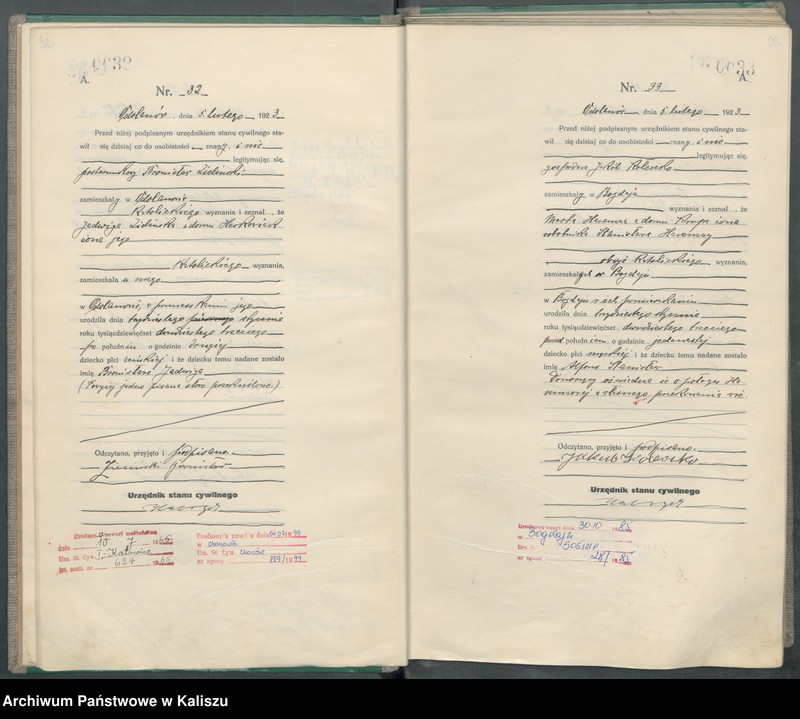 0032
A.
Nr. 32
Odolanów, dnia 5. lutego 1923
Przed niżej podpisanym urzędnikiem stanu cywilnego sta-
wił się dzisiaj co do osobistości znany i nie
legitymując się,
Bronisław Zieliński
zamieszkały w Odolanowie
katolickiego wyznania i zeznał, że
Jadwiga Zielińska z domu
żona jego
katolickiego wyznania,
zamieszkała u niego
w Odolanowie, w pomieszkaniu jego
urodziła dnia trzydziestego pierwszego stycznia
roku tysiącdziewięćset dwudziestego trzeciego
po południu o godzinie drugiej
dziecko płci żeńskiej i że dziecku temu nadane zostało
imię Bronisława Jadwiga
(Powyżej jedno pisane słowo przekreślono.)
Odczytano, przyjęto i podpisano.
Zieliński Bronisław
Urzędnik stanu cywilnego
dnia 10 7 1965
Urz. St. Cyw. I-Katowice
624 1965
Urodzony/a zmarł/a dnia 04.07 1999
w Chorzowie
Urz. St. Cyw. Chorzów
nr zgonu /1999
0033
A.
Nr. 33
Odolanów dnia 5. lutego 1923
Przed niżej podpisanym urzędnikiem stanu cywilnego sta-
wił się dzisiaj co do osobistości znany i nie
legitymując się,
gospodarz Jakób
zamieszkały w Bogdaju
wyznania i zeznał, że
Marta z domu żona
robotnika Stanisława
oboje katolickiego wyznania,
zamieszkali w Bogdaju
w Bogdaju w ich pomieszkaniu
urodziła dnia trzydziestego stycznia
roku tysiącdziewięćset dwudziestego trzeciego
przed południem o godzinie jedenastej
dziecko płci męskiej i że dziecku temu nadane zostało
imię Alfons Stanisław
Donoszący oświadcza iż o połogu
z własnego przekonania wie.
Odczytano, przyjęto i podpisano.
Jakub
Urzędnik stanu cywilnego
dnia 30.10 1985
w Bogdaju
Sośnie
nr zgonu 28/1985
Archiwum Państwowe w Kaliszu